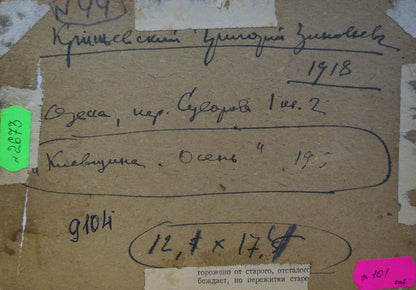 N 443
Крыжевский Григорий Зиновьев
1918
Одесса, пер. Суворова 1 кв. 2
"Киевщина. Осень" 19
N 2673
9104
12, × 17,
торожено от старого, отсталого
беждает, но пережитки старо
N 101